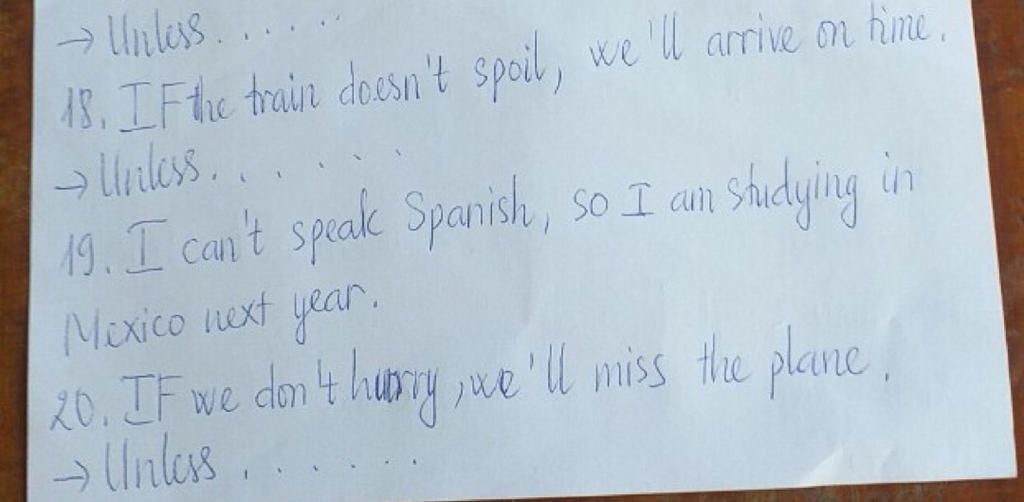 → Unless......
18. IF the train doesn't spoil, we'll arrive on time.
→ Unless......
19. I can't speak Spanish, so I am studying in
Mexico next year.
20. IF we don't hurry, we'll miss the plane.
→ Unless......